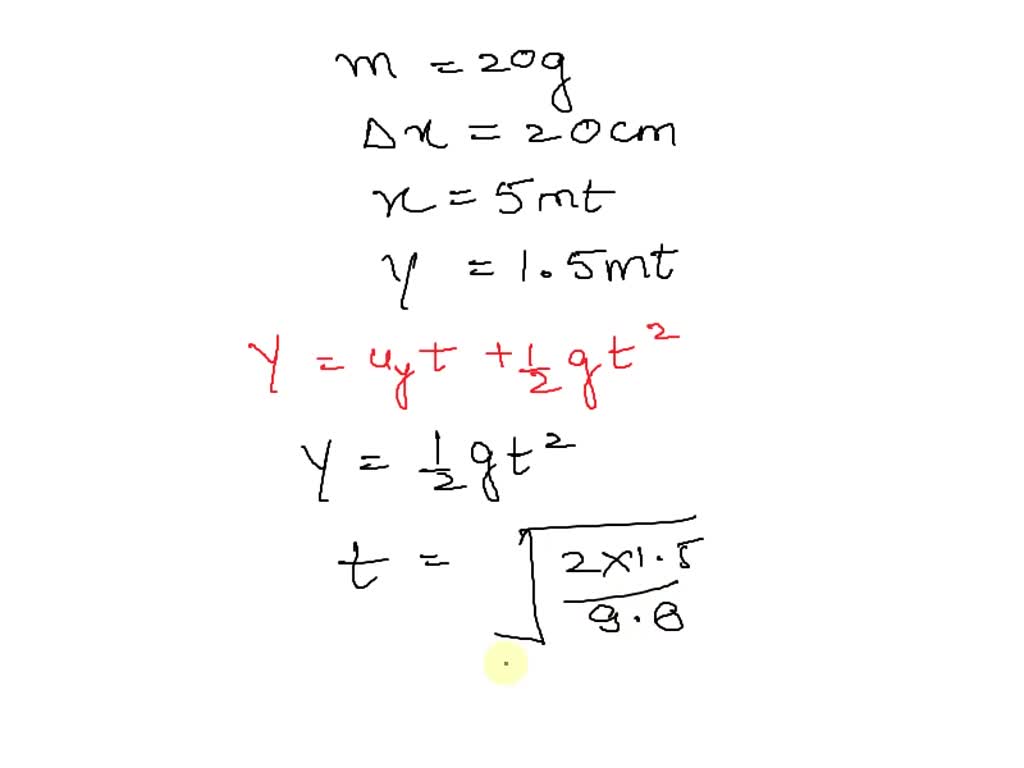 m = 20g
Δx = 20cm
x = 5mt
y = 1.5mt
y = uyt + 1/2 gt²
y = 1/2 gt²
t = √(2×1.5/9.8)